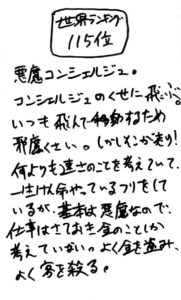 世界ランキング
115位
悪魔コンシェルジュ。
コンシェルジュのくせに飛ぶ。
いつも飛んで移動するため
邪魔くさい。(しかもこか走り!
何よりも速さのことを考えていて、
一生けん命やっているフリをして
いるが、基本は悪魔なので、
仕事はさておき金のことしか
考えていない。よく金を盗み、
よく客を殺る。